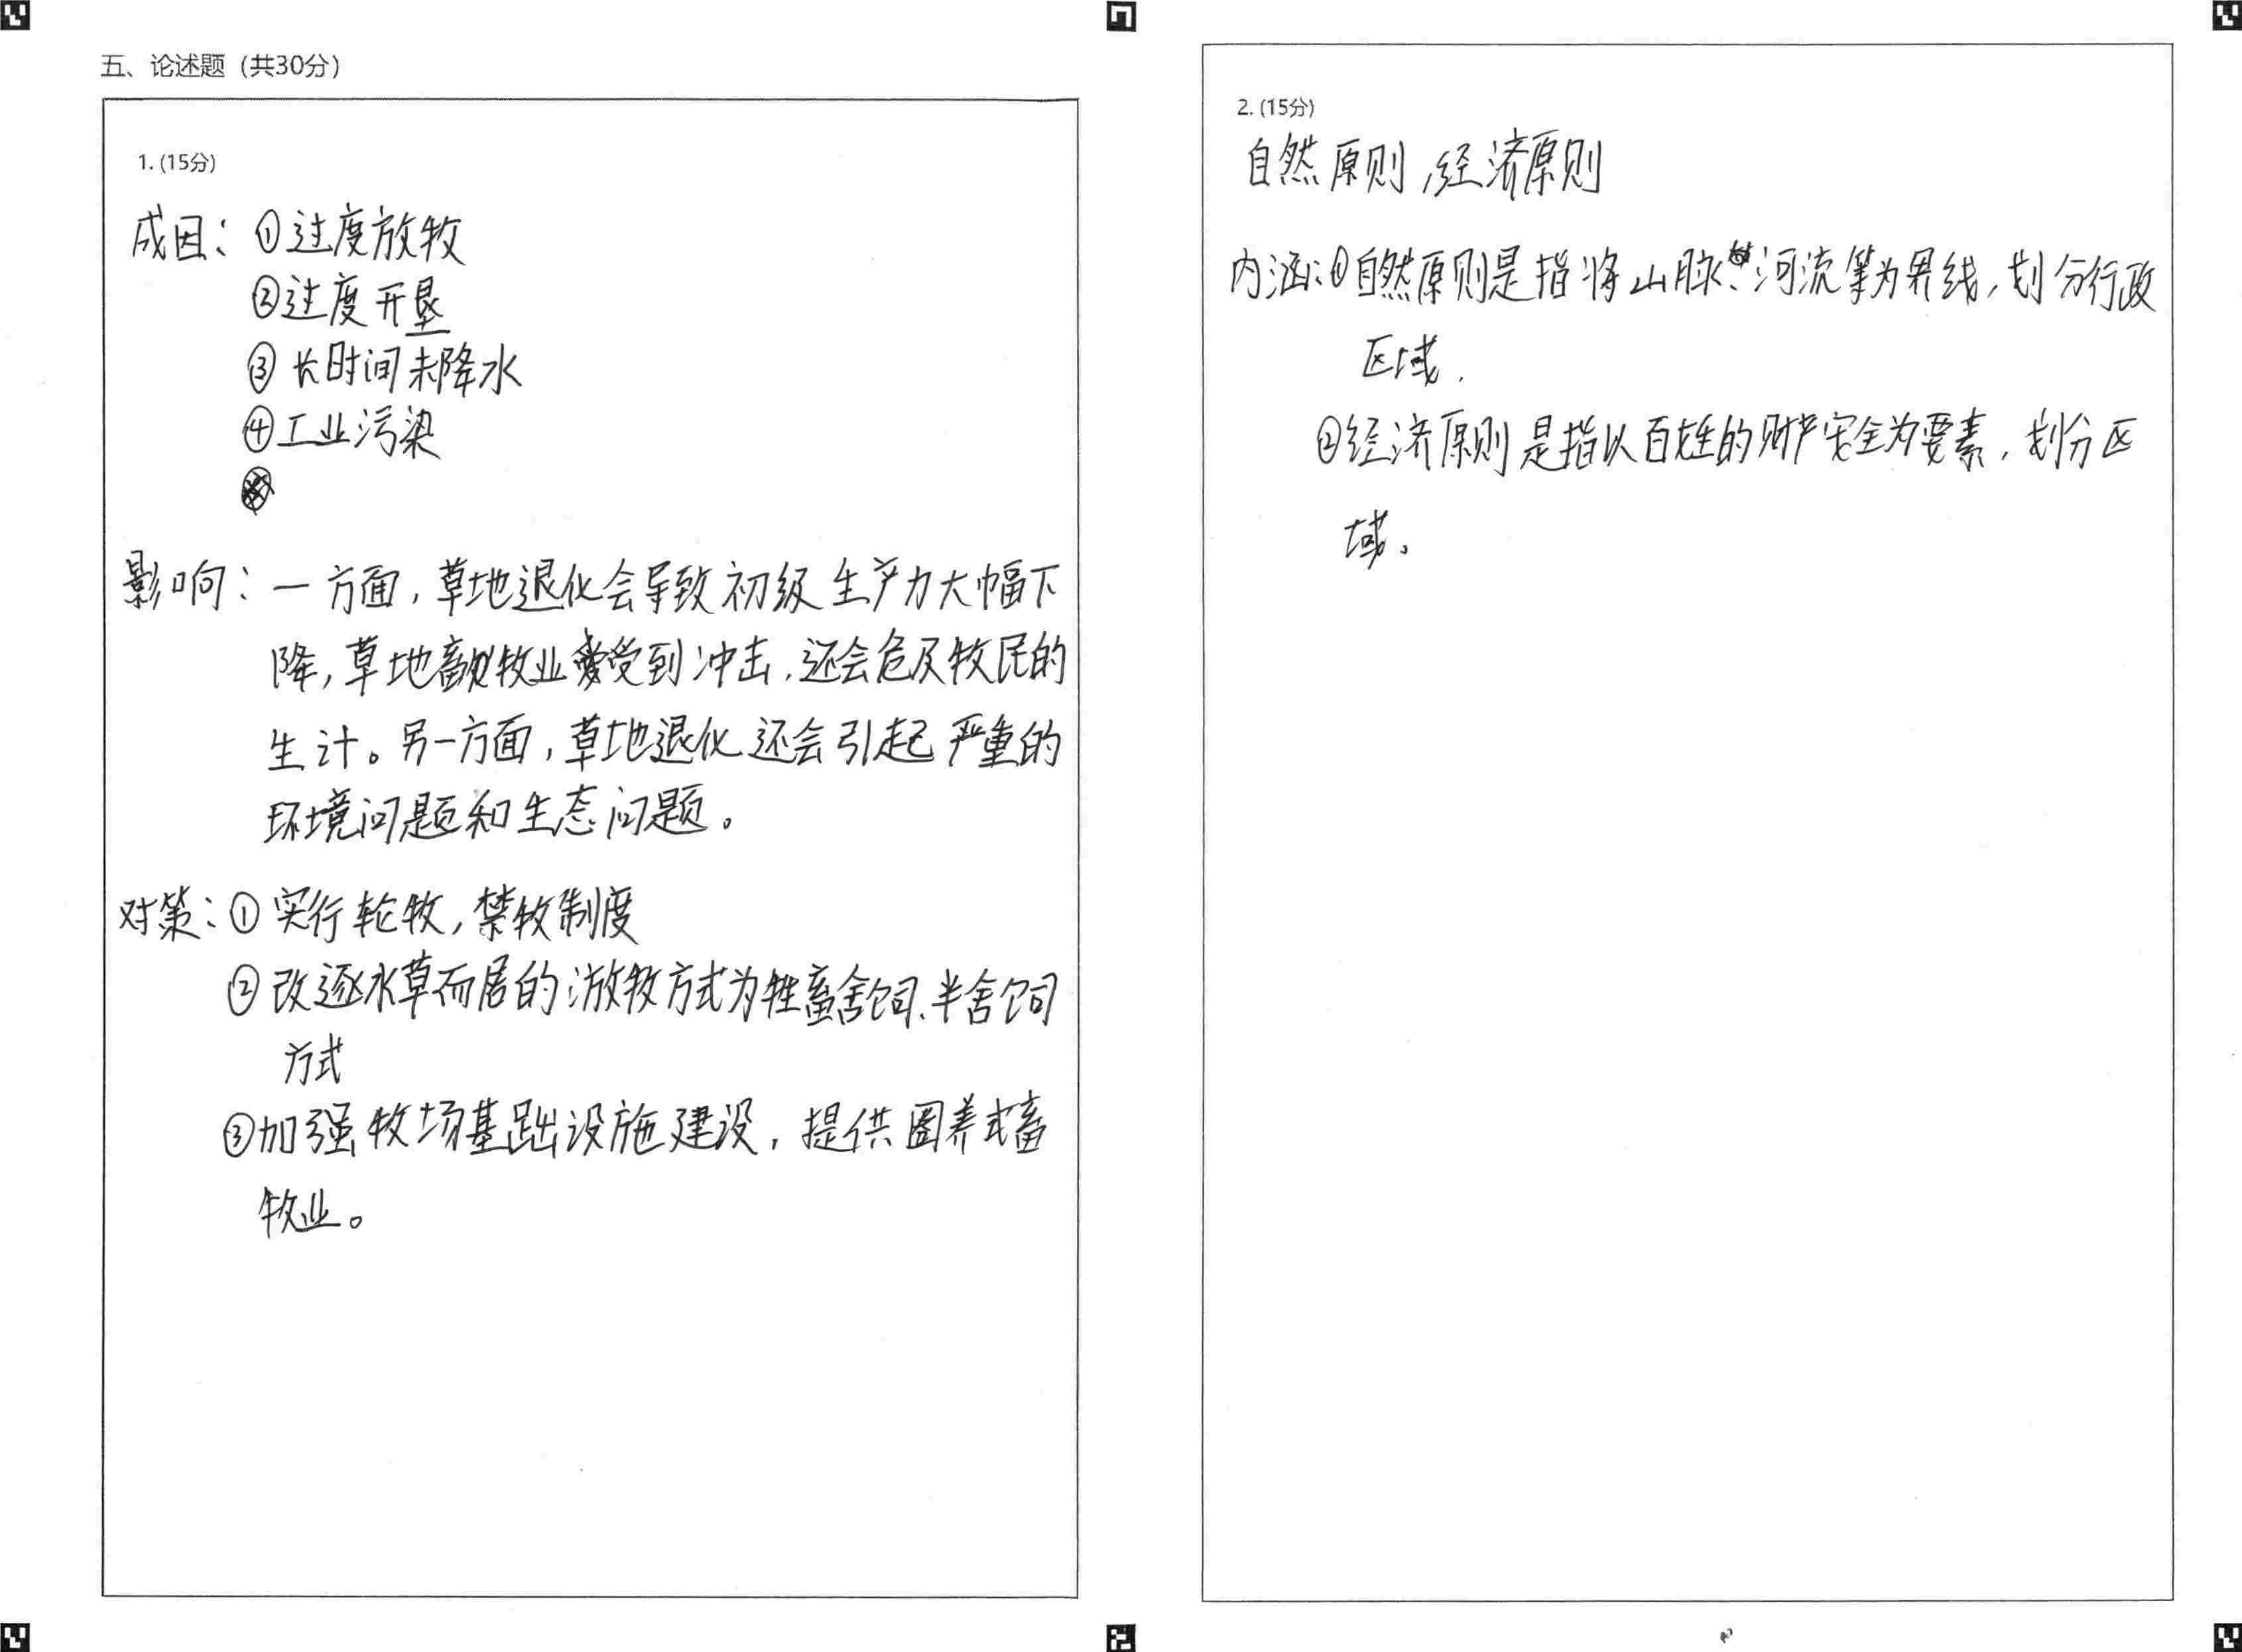 五、论述题（共30分）
1. (15分)
成因：①过度放牧
②过度开垦
③长时间未降水
④工业污染
影响：一方面，草地退化会导致初级生产力大幅下
降，草地畜牧业受到冲击，还会危及牧民的
生计。另一方面，草地退化还会引起严重的
环境问题和生态问题。
对策：①实行轮牧，禁牧制度
②改逐水草而居的游牧方式为牲畜舍饲、半舍饲
方式
③加强牧场基础设施建设，提供圈养式畜
牧业。
2. (15分)
自然原则，经济原则
内涵：①自然原则是指将山脉、河流等为界线，划分行政
区域．
②经济原则是指以百姓的财产安全为要素，划分区
域。